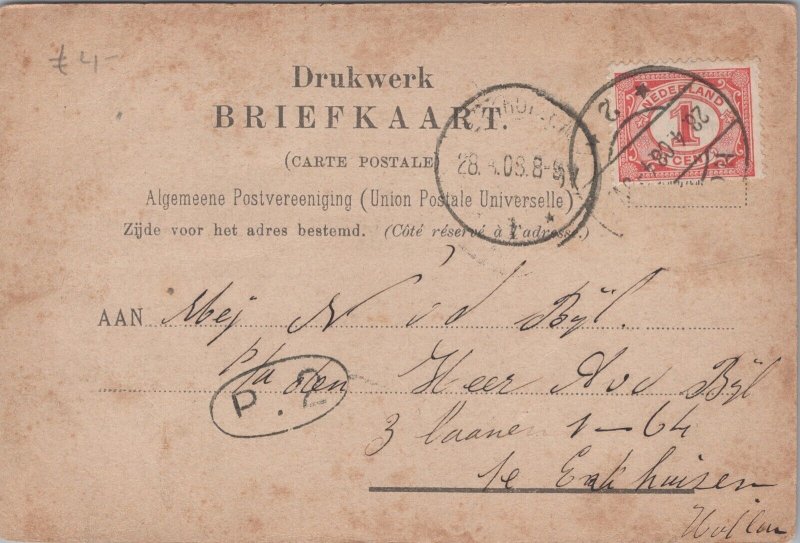 £ 4-
Drukwerk
BRIEFKAART.
(CARTE POSTALE)
Algemeene Postvereeniging (Union Postale Universelle)
Zijde voor het adres bestemd. (Côté réservé à l'adresse.)
NEDERLAND
1
CENT
28.4.08.8-9V
1
2
AAN Mej N v d Bÿl.
P/a den Heer A v d Bÿl
P. 2
3 laanen 1-64
te Enkhuisen
Hollan